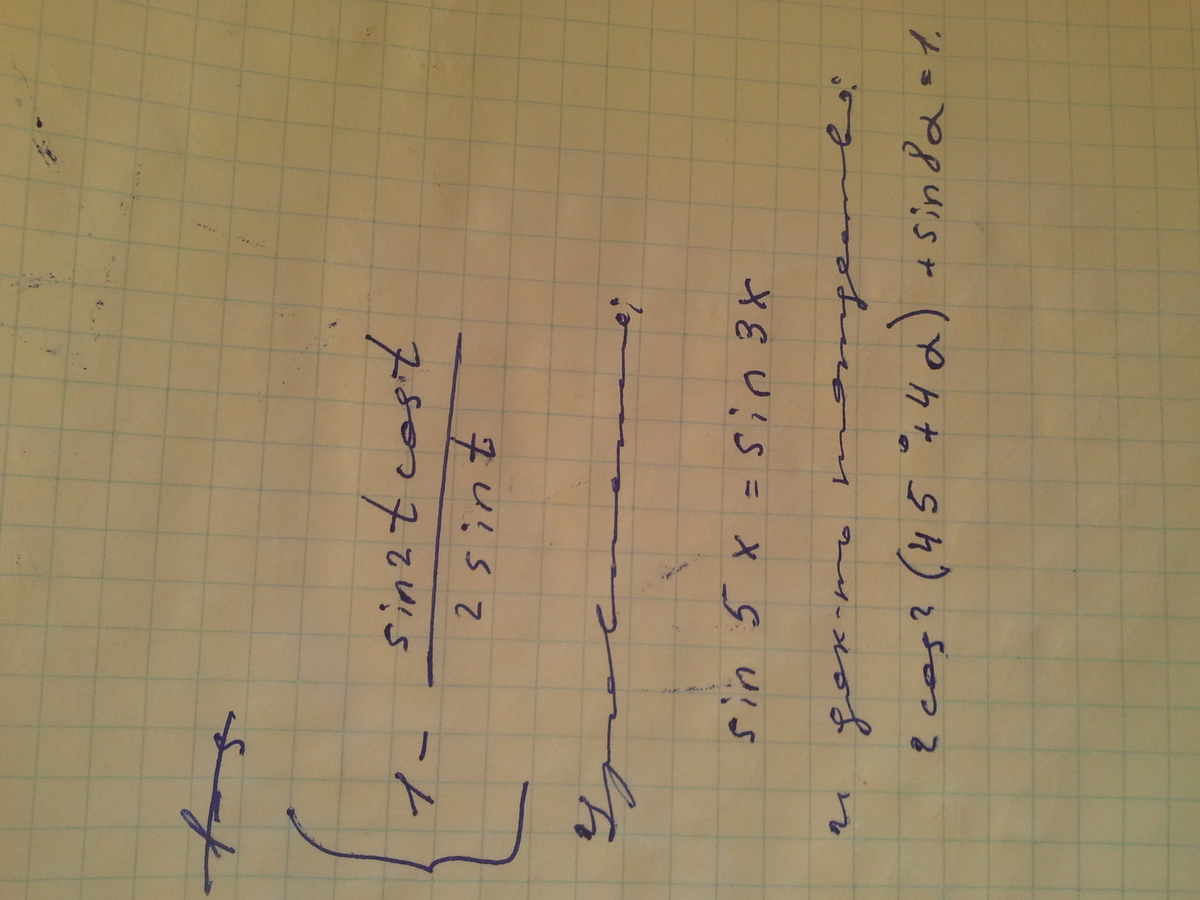 1 - sin2t cost / 2 sin t
Упростить;
sin 5x = sin 3x
и док-ть тождество:
2 cos² (45° + 4α) + sin 8α = 1.